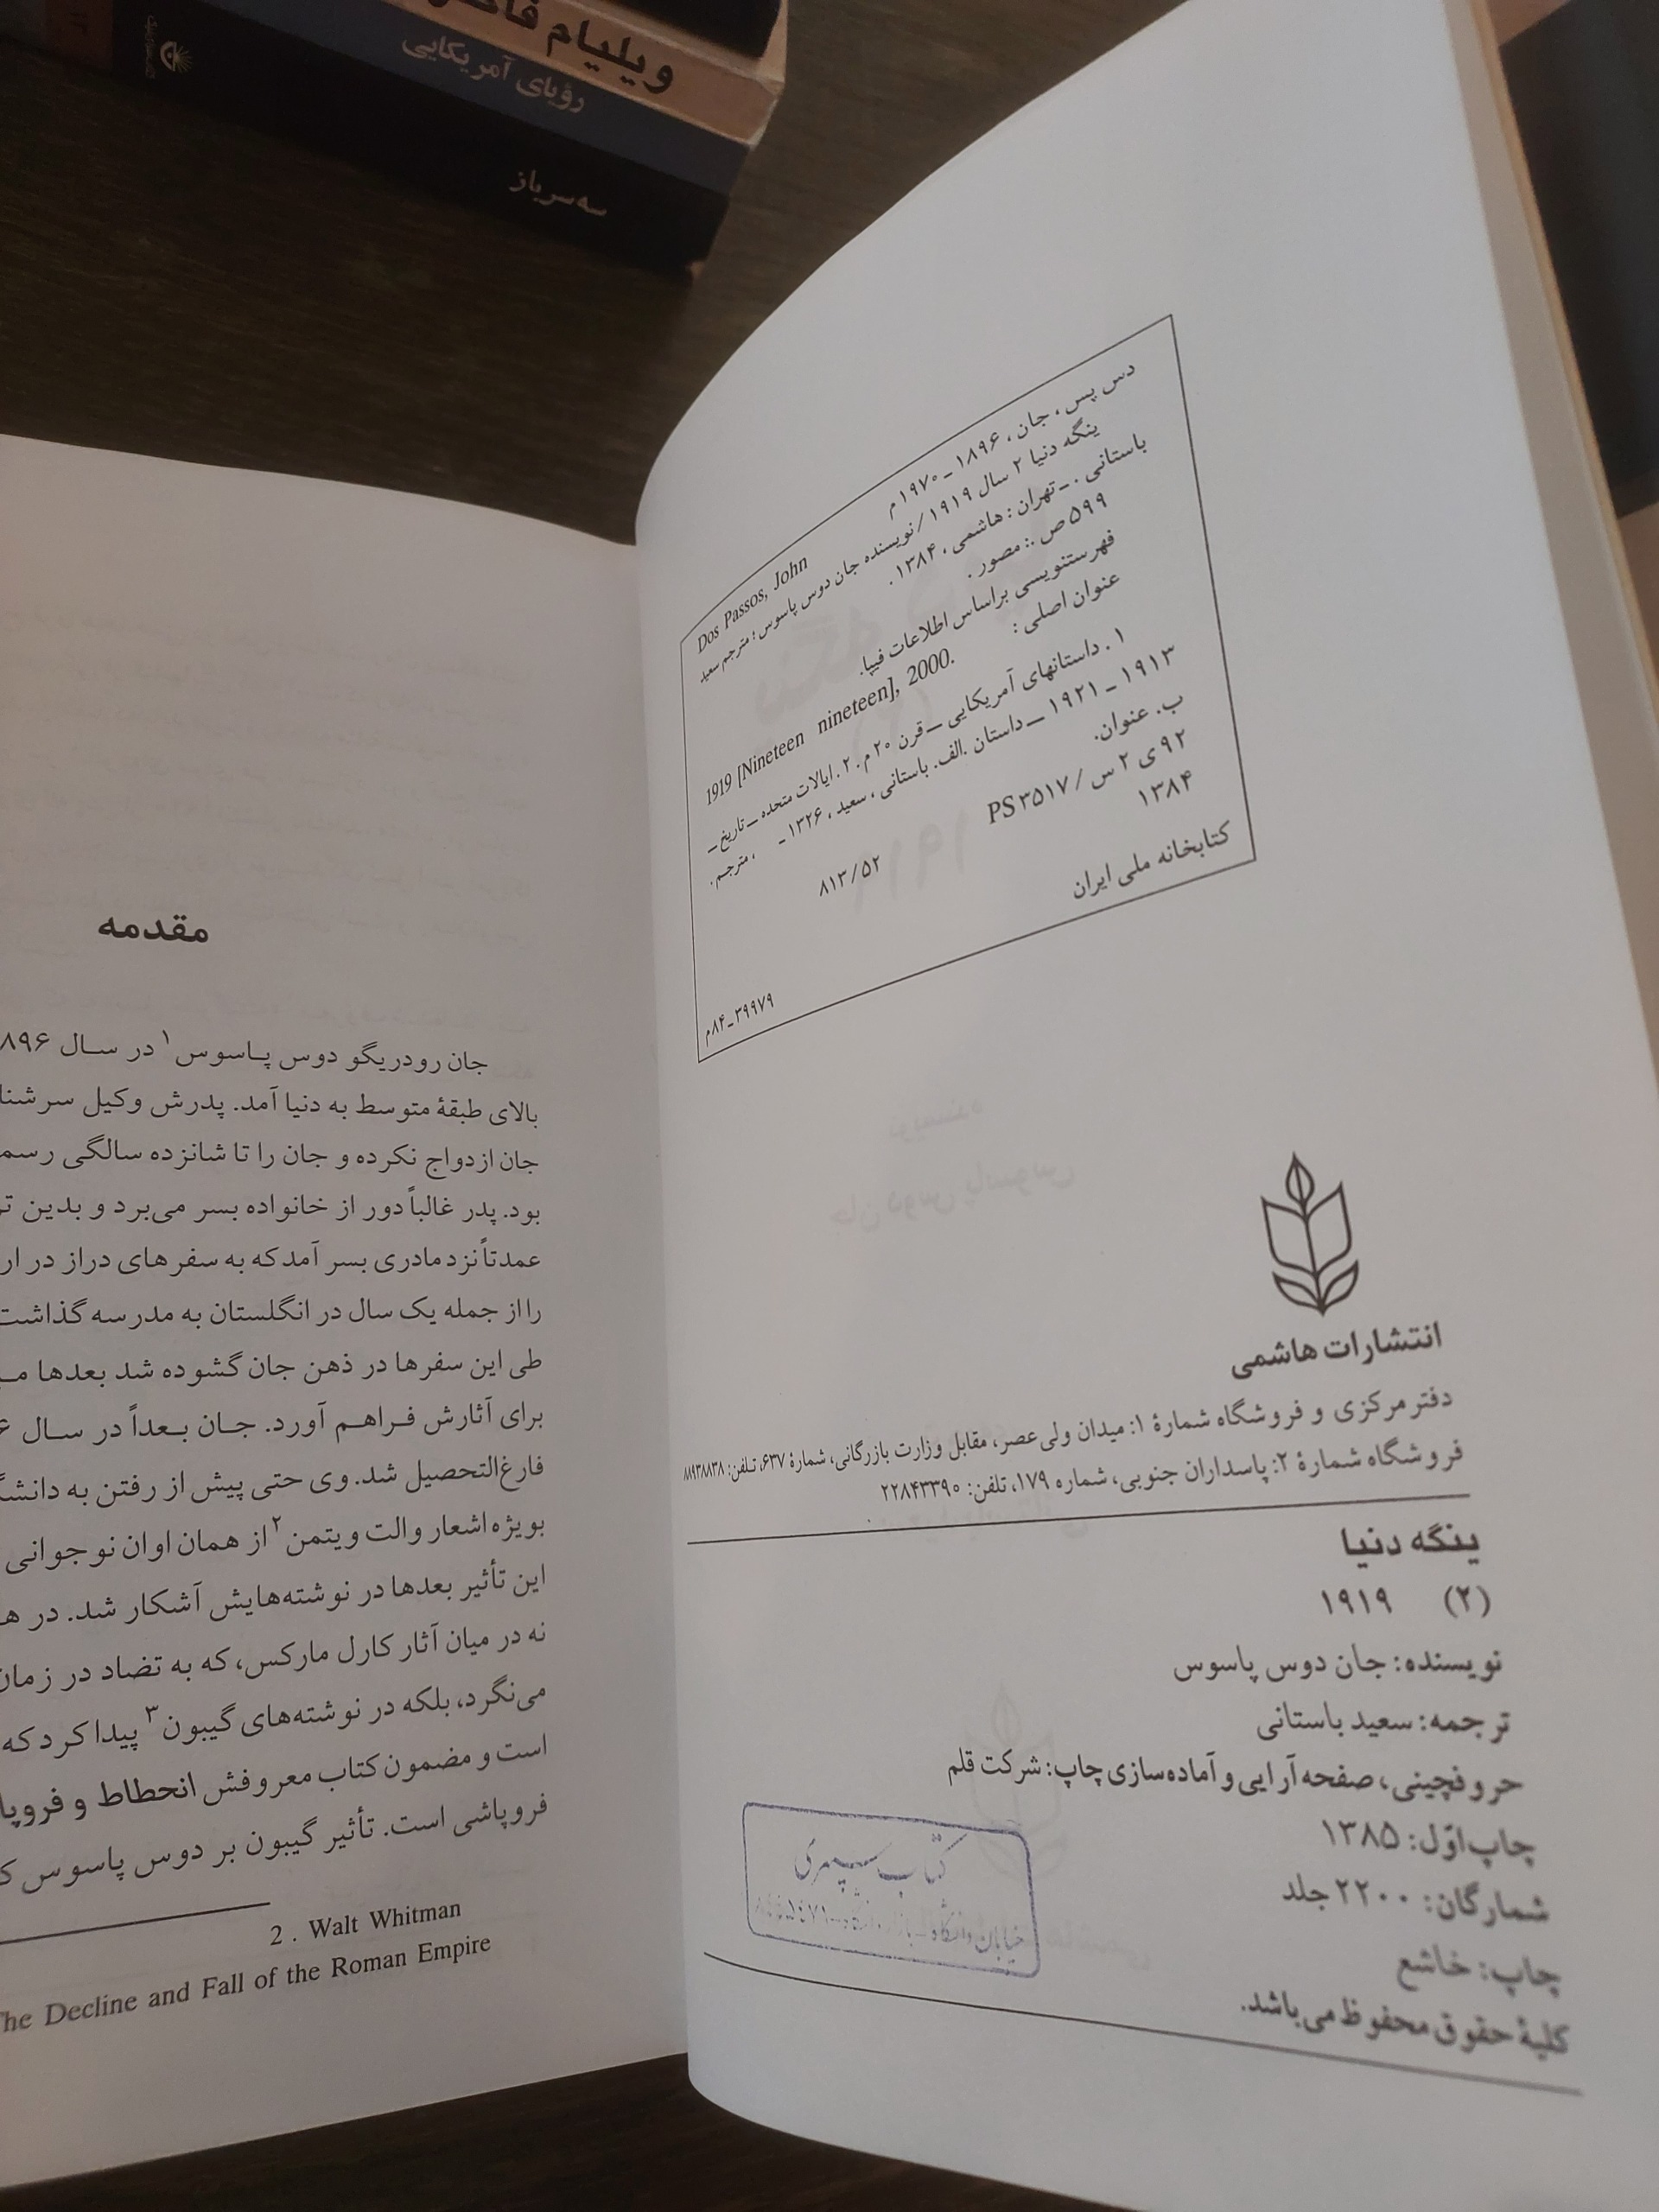 ویلیام
رؤیای آمریکایی
سه‌سرباز
دس پس، جان، ۱۸۹۶ ـ ۱۹۷۰م
Dos Passos, John
ینگه دنیا ۲ سال ۱۹۱۹ / نویسنده جان دوس پاسوس؛ مترجم سعید
باستانی. ـ تهران: هاشمی، ۱۳۸۴.
۵۹۹ص.: مصور.
فهرستنویسی براساس اطلاعات فیپا.
عنوان اصلی:
1919 [Nineteen nineteen], 2000.
۱. داستانهای آمریکایی ــ قرن ۲۰م. ۲. ایالات متحده ــ تاریخ ــ
۱۹۱۳ ـ ۱۹۲۱ ــ داستان. الف. باستانی، سعید، ۱۳۲۶ ـ ، مترجم.
ب. عنوان.
۹۲ی ۲س / PS۳۵۱۷
۸۱۳/۵۲
۱۳۸۴
کتابخانه ملی ایران
۳۹۹۷۹ـ۸۴م
انتشارات هاشمی
دفتر مرکزی و فروشگاه شمارهٔ ۱: میدان ولی‌عصر، مقابل وزارت بازرگانی، شمارهٔ ۶۳۷، تلفن: ۸۸۹۳۸۸۳۸
فروشگاه شمارهٔ ۲: پاسداران جنوبی، شماره ۱۷۹، تلفن: ۲۲۸۴۳۳۹۰
ینگه دنیا
(۲) ۱۹۱۹
نویسنده: جان دوس پاسوس
ترجمه: سعید باستانی
حروفچینی، صفحه‌آرایی و آماده‌سازی چاپ: شرکت قلم
چاپ اوّل: ۱۳۸۵
شمارگان: ۲۲۰۰ جلد
چاپ: خاشع
کلیهٔ حقوق محفوظ می‌باشد.
کتاب سپهری
خیابان دانشگاه
مقدمه
جان رودریگو دوس پاسوس۱ در سال ۸۹۶
بالای طبقهٔ متوسط به دنیا آمد. پدرش وکیل
جان ازدواج نکرده و جان را تا شانزده سالگی
بود. پدر غالباً دور از خانواده بسر می‌برد و بدین
عمدتاً نزد مادری بسر آمد که به سفرهای دراز در
را از جمله یک سال در انگلستان به مدرسه گذاشت
طی این سفرها در ذهن جان گشوده شد بعدها
برای آثارش فراهم آورد. جان بعداً در سال
فارغ‌التحصیل شد. وی حتی پیش از رفتن به
بویژه اشعار والت ویتمن۲ از همان اوان نوجوانی
این تأثیر بعدها در نوشته‌هایش آشکار شد. در
نه در میان آثار کارل مارکس، که به تضاد در زمان
می‌نگرد، بلکه در نوشته‌های گیبون۳ پیدا کرد که
است و مضمون کتاب معروفش انحطاط و
فروپاشی است. تأثیر گیبون بر دوس پاسوس
2 . Walt Whitman
The Decline and Fall of the Roman Empire